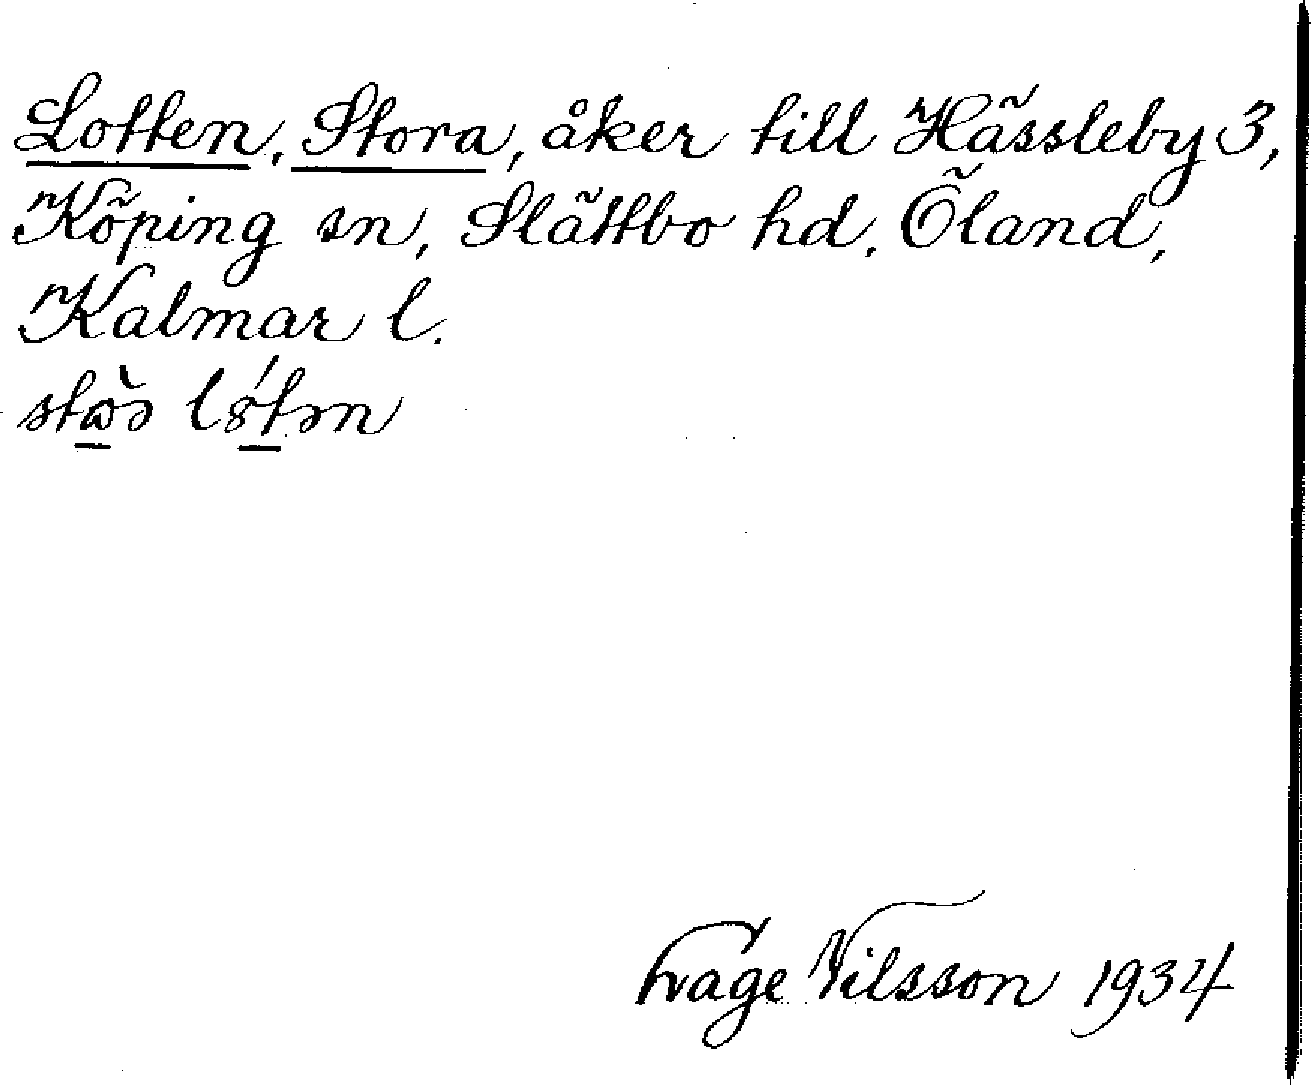 Lotten, Stora, åker till Hässleby 3,
Köping sn, Slättbo hd. Öland,
Kalmar l.
Nilsson 1934